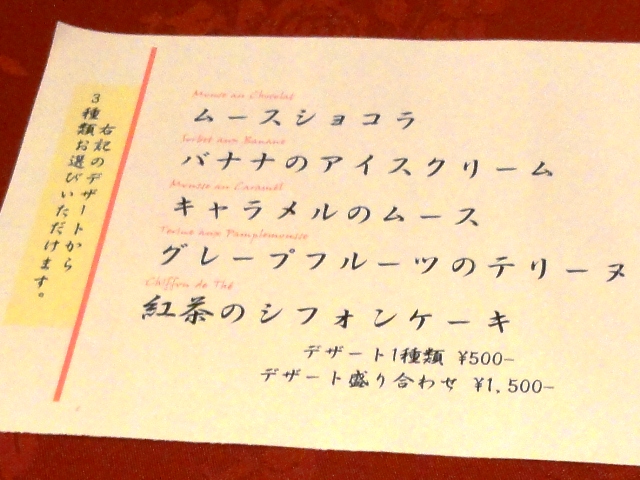 右記のデザートから
3種類お選びいただけます。
Mousse au Chocolat
ムースショコラ
Sorbet aux Banane
バナナのアイスクリーム
Mousse au Caramel
キャラメルのムース
Terine aux Pamplemousse
グレープフルーツのテリーヌ
Chiffon de Thé
紅茶のシフォンケーキ
デザート1種類 ¥500-
デザート盛り合わせ ¥1,500-